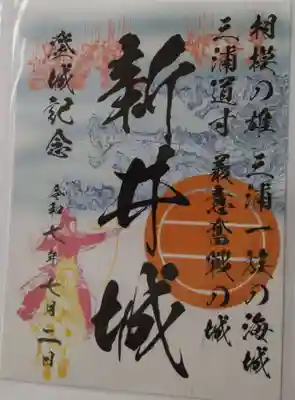 相模の雄 三浦一族の海城
三浦道寸 奮戦の城
新井城
登城記念
令和七年七月二日